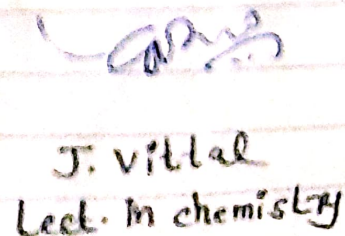 J. Vittal
Lect. In chemistry